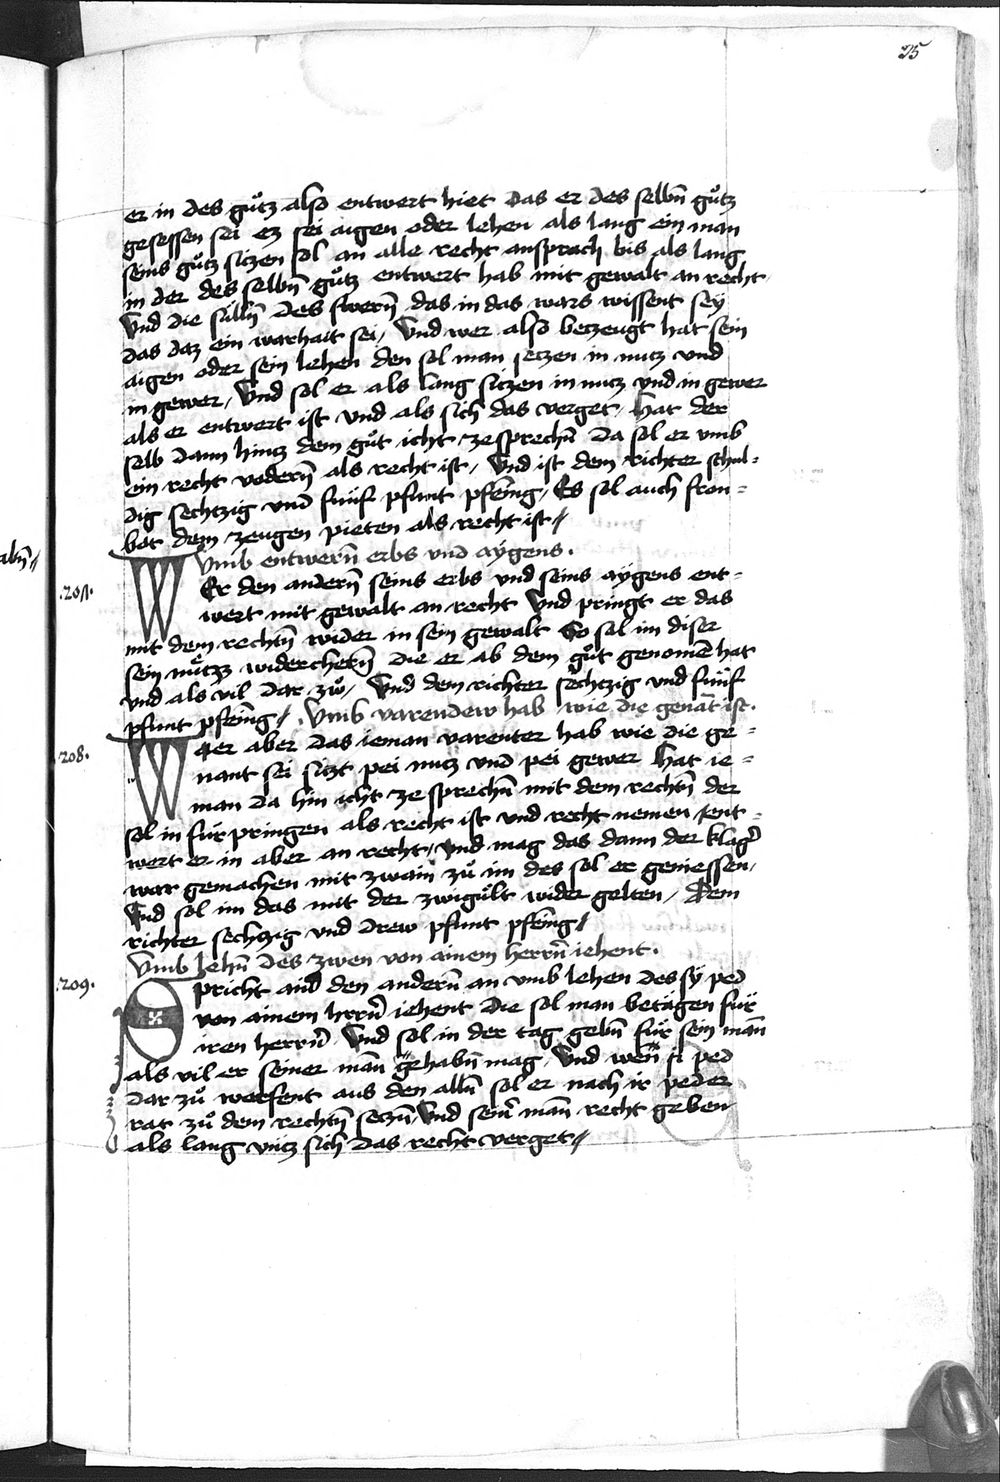 25
er in des gůtz also entwert hiet das er des selbñ gůtz
gesessen sei ez sei aigen oder lehen als lang ein man
seins gůtz sitzen sol an alle recht ansprach bis als lang
in der des selbñ gůtz entwert hab mit gewalt an recht
Und die süllñ des swerñ das in das wars wissent sey
das daz ein warhait sei / Und wer also betzeugt hat sein
aigen oder sein lehen den sol man setzen in nutz vnd
in gewer / Und sol er als lang sitzen in nutz vnd in gewer
als er entwert ist vnd als sich das verget / Hat der
selb dann hintz dem gůt icht ze sprechñ da sol er vmb
ein recht vodern als recht ist / Und ist dem richter schul=
dig sechtzig vnd fünf pfunt pfēnig / Es sol auch fron=
bot dem zeugen pieten als recht ist /
Vmb entwerñ erbs vnd aÿgens .
.207.
WEr den andern seins erbs vnd seins aÿgens ent=
wert mit gewalt an recht Und pringt er das
mit dem rechtñ wider in sein gewalt So sol im diser
sein nůtzz widercherñ die er ab dem gůt genomē hat
vnd als vil dar zů / Und dem richter sechtzig vnd fünf
pfunt pfēnig / . Vmb varendew hab wie die genāt ist .
208.
WEr aber das ieman varenter hab wie die ge=
nant sei sitzt pei nutz vnd pei gewer Hat ie=
man da hin icht ze sprechñ mit dem rechtñ der
sol in für pringen als recht ist vnd recht nemen / ent=
wert er in aber an recht / Und mag das dann der klagʼ
war gemachen mit zwain zů im des sol er geniessen /
Und sol im das mit der zwigült wider gelten / Dem
richter sechtzig vnd drew pfunt pfēnig /
Vmb Lehñ des zwen von ainem herrñ iehent .
.209.
Spricht ainʼ den anderñ an vmb lehen des sÿ ped
von ainem herrñ iehent Die sol man betagen für
iren herrñ Und sol in der tag gebñ für sein mān
als vil er seiner mān gehabñ mag / Und weñ si ped
dar zů werfent aus den allñ sol er nach ir peder
rat zů dem rechtñ setzñ / Und seinʼ mān recht geben
als lang vntz sich das recht verget /